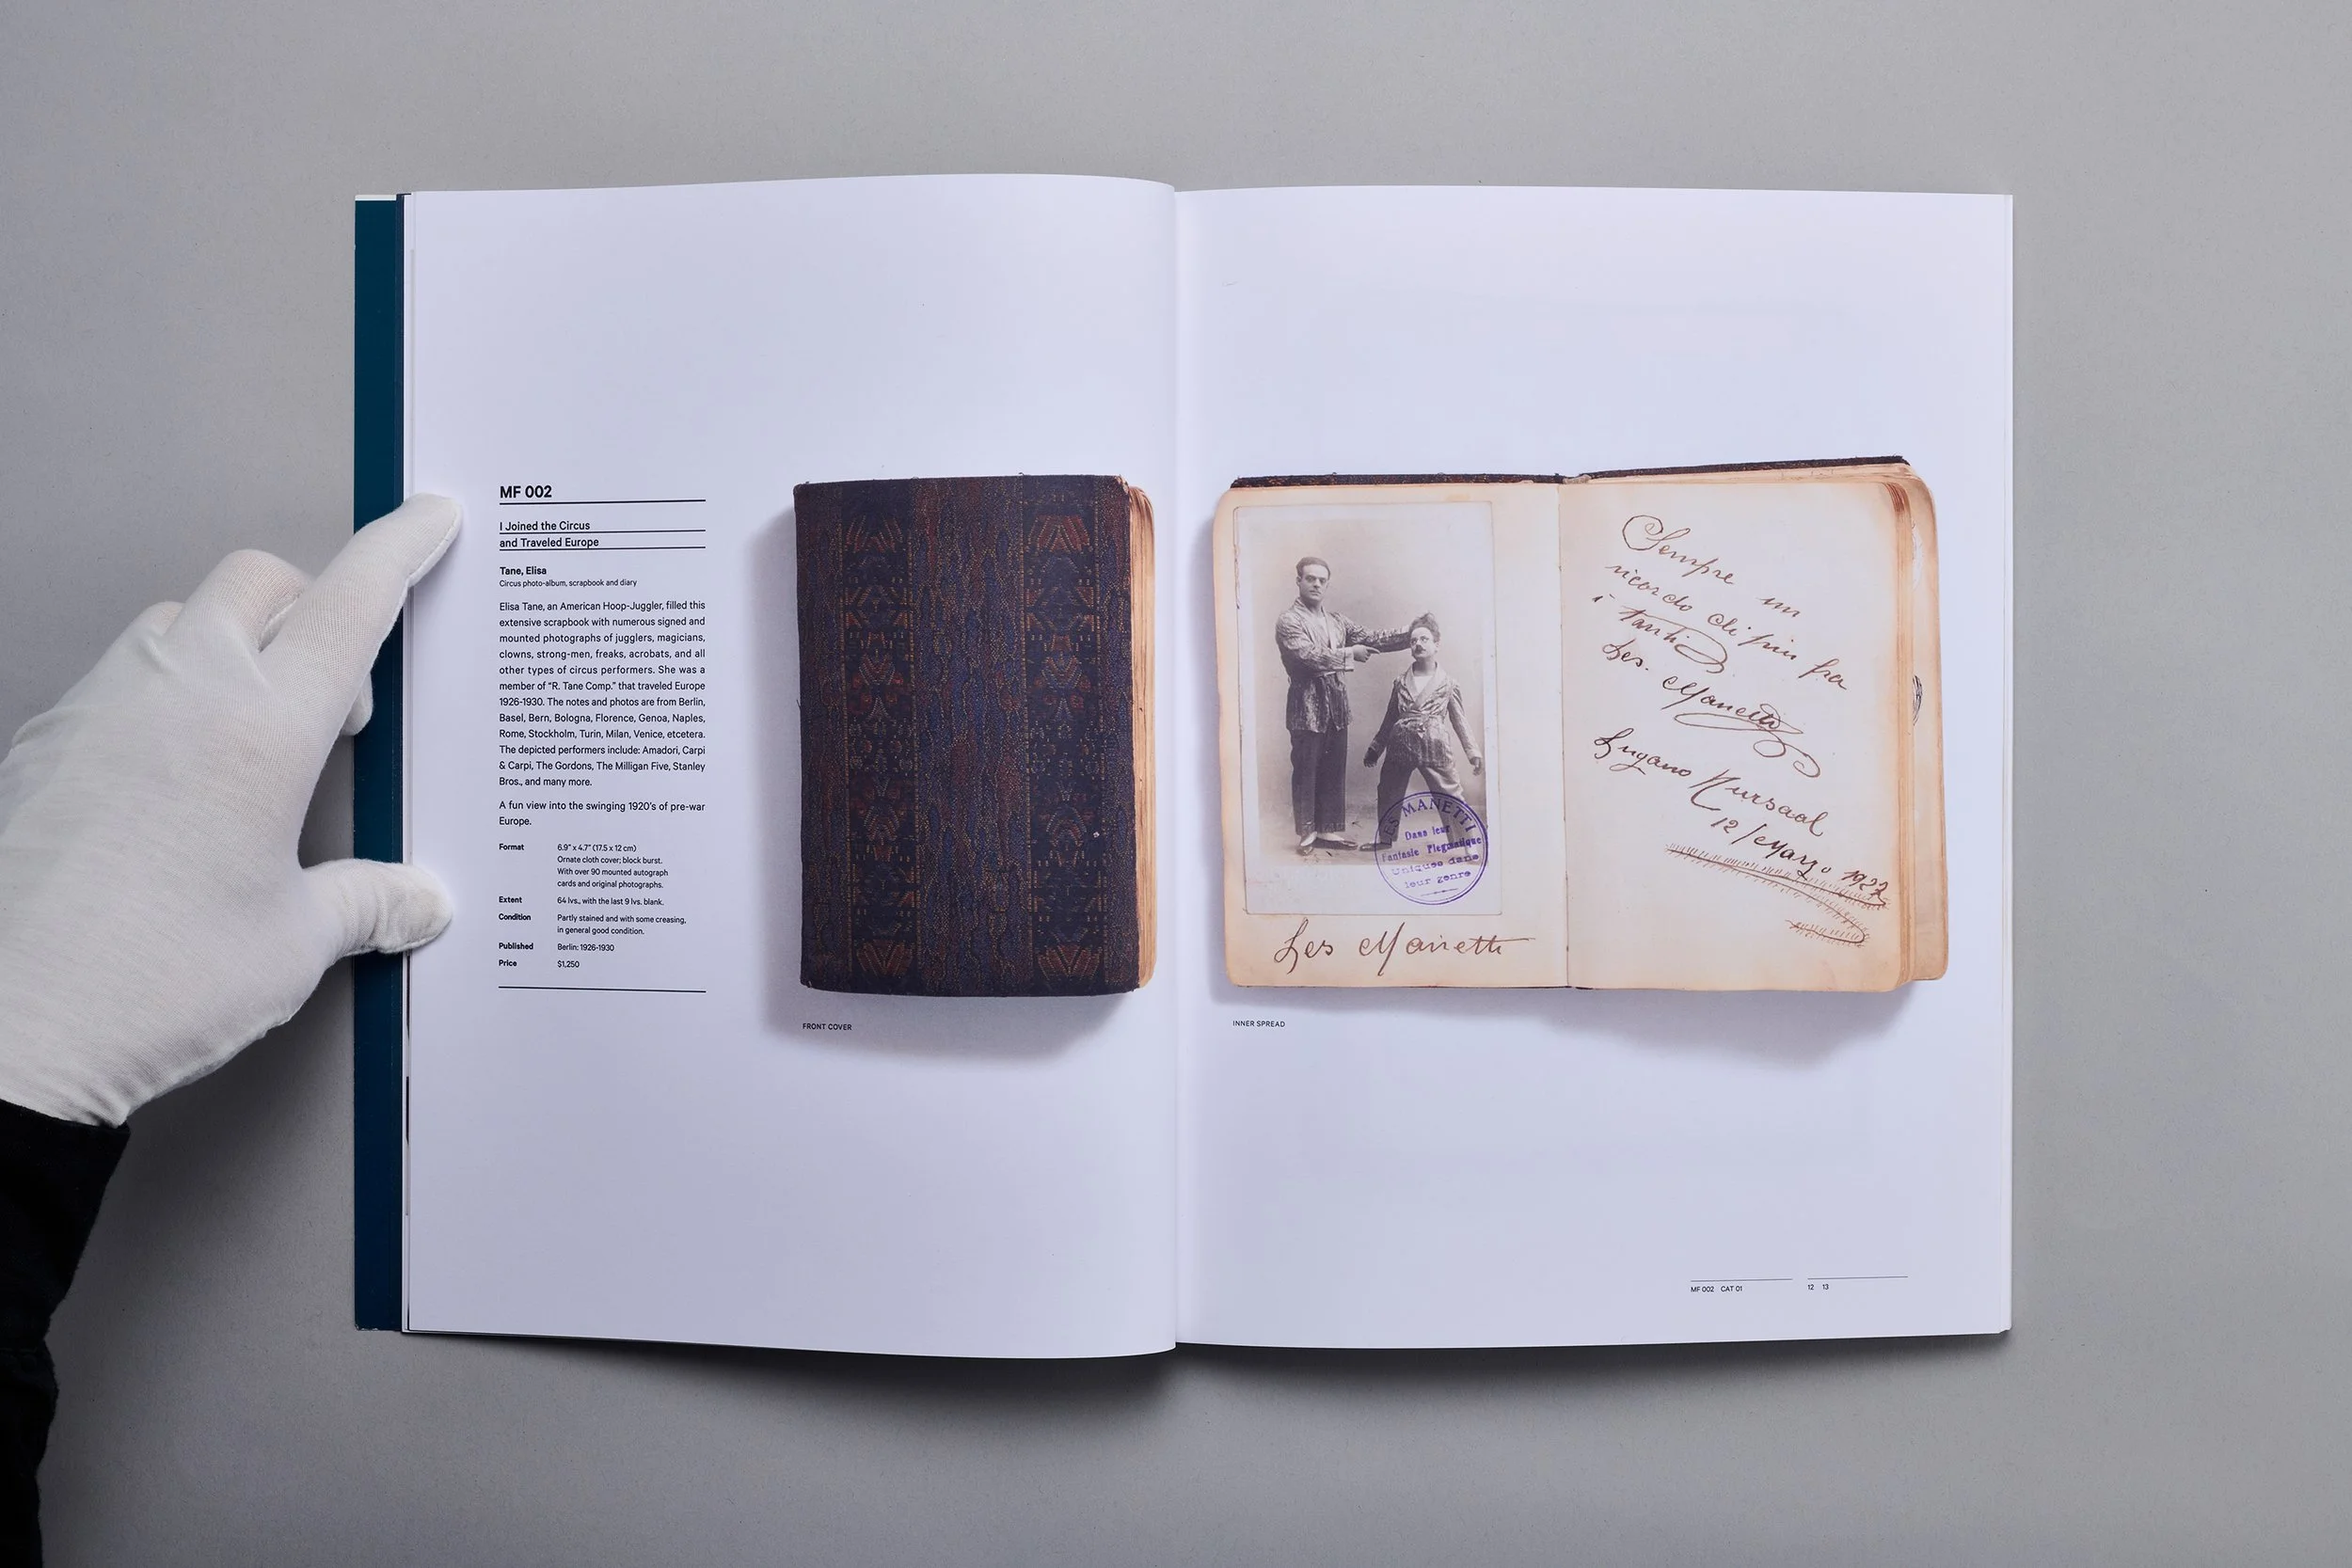 MF 002
I Joined the Circus
and Traveled Europe
Tane, Elisa
Circus photo-album, scrapbook and diary
Elisa Tane, an American Hoop-Juggler, filled this
extensive scrapbook with numerous signed and
mounted photographs of jugglers, magicians,
clowns, strong-men, freaks, acrobats, and all
other types of circus performers. She was a
member of “R. Tane Comp.” that traveled Europe
1926-1930. The notes and photos are from Berlin,
Basel, Bern, Bologna, Florence, Genoa, Naples,
Rome, Stockholm, Turin, Milan, Venice, etcetera.
The depicted performers include: Amadori, Carpi
& Carpi, The Gordons, The Milligan Five, Stanley
Bros., and many more.
A fun view into the swinging 1920’s of pre-war
Europe.
Format 6.9” x 4.7” (17.5 x 12 cm)
Ornate cloth cover; block burst.
With over 90 mounted autograph
cards and original photographs.
Extent 64 lvs., with the last 9 lvs. blank.
Condition Partly stained and with some creasing,
in general good condition.
Published Berlin: 1926-1930
Price $1,250
FRONT COVER
LES MANETTI
Dans leur
Fantasie Flegmatique
Uniques dans
leur genre
Les Manetti
Sempre un
ricordo di piu fra
i tanti
Les. Manetti
Lugano Kursaal
12/Marzo
INNER SPREAD
MF 002 CAT 01 12 13